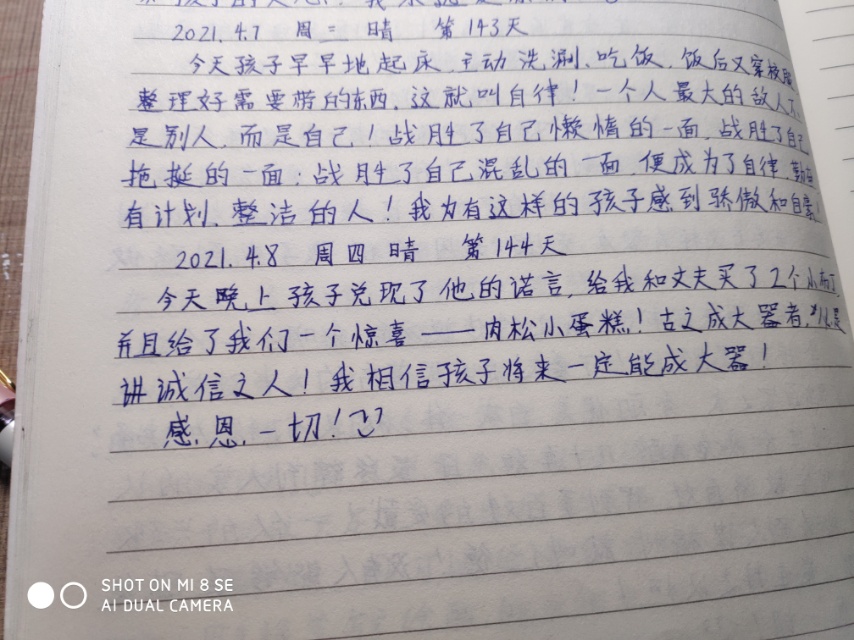 2021.4.7 周二 晴 第143天
今天孩子早早地起床、主动洗涮、吃饭、饭后又
整理好需要带的东西、这就叫自律！一个人最大的敌人不
是别人、而是自己！战胜了自己懒惰的一面、战胜了自己
拖挺的一面；战胜了自己混乱的一面、便成为了自律、
有计划、整洁的人！我为有这样的孩子感到骄傲和自豪！
2021.4.8 周四 晴 第144天
今天晚上孩子兑现了他的诺言、给我和丈夫买了2个小布丁、
并且给了我们一个惊喜——肉松小蛋糕！古之成大器者，必是
讲诚信之人！我相信孩子将来一定能成大器！
感恩一切！
SHOT ON MI 8 SE
AI DUAL CAMERA